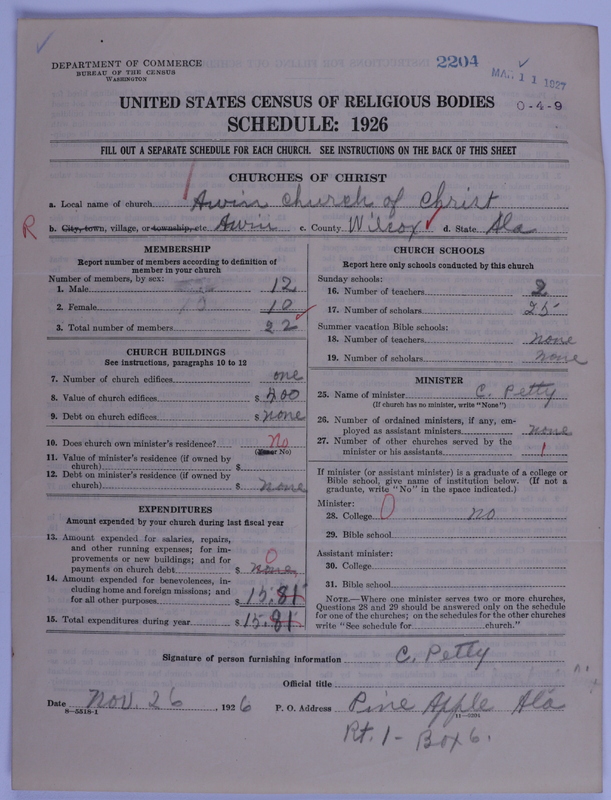 DEPARTMENT OF COMMERCE
BUREAU OF THE CENSUS
WASHINGTON
2204
MAR 11 1927
0-4-9
UNITED STATES CENSUS OF RELIGIOUS BODIES
SCHEDULE: 1926
FILL OUT A SEPARATE SCHEDULE FOR EACH CHURCH. SEE INSTRUCTIONS ON THE BACK OF THIS SHEET
CHURCHES OF CHRIST
a. Local name of church Awin Church of Christ
R b. City, town, village, or township, etc. Awin c. County Wilcox d. State Ala
MEMBERSHIP
Report number of members according to definition of
member in your church
Number of members, by sex:
1. Male 12
2. Female 10
3. Total number of members 22
CHURCH BUILDINGS
See instructions, paragraphs 10 to 12
7. Number of church edifices one
8. Value of church edifices $ 200
9. Debt on church edifices $ none
10. Does church own minister's residence? No
(Yes or No)
11. Value of minister's residence (if owned by
church) $
12. Debt on minister's residence (if owned by
church) $ none
EXPENDITURES
Amount expended by your church during last fiscal year
13. Amount expended for salaries, repairs,
and other running expenses; for im-
provements or new buildings; and for
payments on church debt $ none 0
14. Amount expended for benevolences, in-
cluding home and foreign missions; and
for all other purposes $ 15.81
15. Total expenditures during year $ 15.81
CHURCH SCHOOLS
Report here only schools conducted by this church
Sunday schools:
16. Number of teachers 2
17. Number of scholars 25
Summer vacation Bible schools:
18. Number of teachers none
19. Number of scholars none
MINISTER
25. Name of minister C. Petty
(If church has no minister, write "None")
26. Number of ordained ministers, if any, em-
ployed as assistant ministers none
27. Number of other churches served by the
minister or his assistants 1
If minister (or assistant minister) is a graduate of a college or
Bible school, give name of institution below. (If not a
graduate, write "No" in the space indicated.)
Minister:
28. College 0 no
29. Bible school
Assistant minister:
30. College
31. Bible school
NOTE.—Where one minister serves two or more churches,
Questions 28 and 29 should be answered only on the schedule
for one of the churches; on the schedules for the other churches
write "See schedule for church."
Signature of person furnishing information C. Petty
Official title
Date Nov. 26, 1926 P. O. Address Pine Apple Ala
8-5518-1
Rt. 1- Box 6.